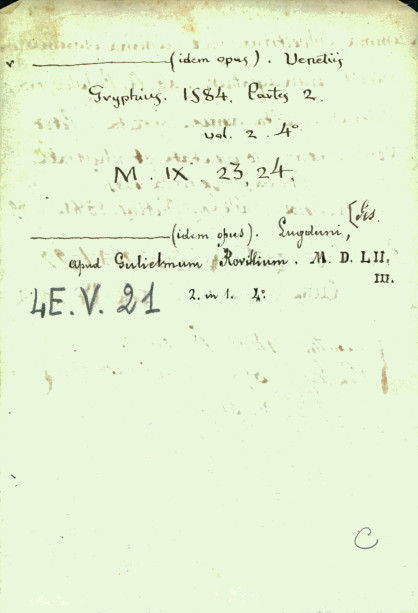 ——— (idem opus). Venetiis
Gryphius. 1584. Partes 2.
vol. 2. 4°
M. IX. 23, 24.
——— (idem opus). Lugduni,
apud Gulielmum Rovillium. M. D. LII.
III.
4E. V. 21
2. in 1. 4°.
C